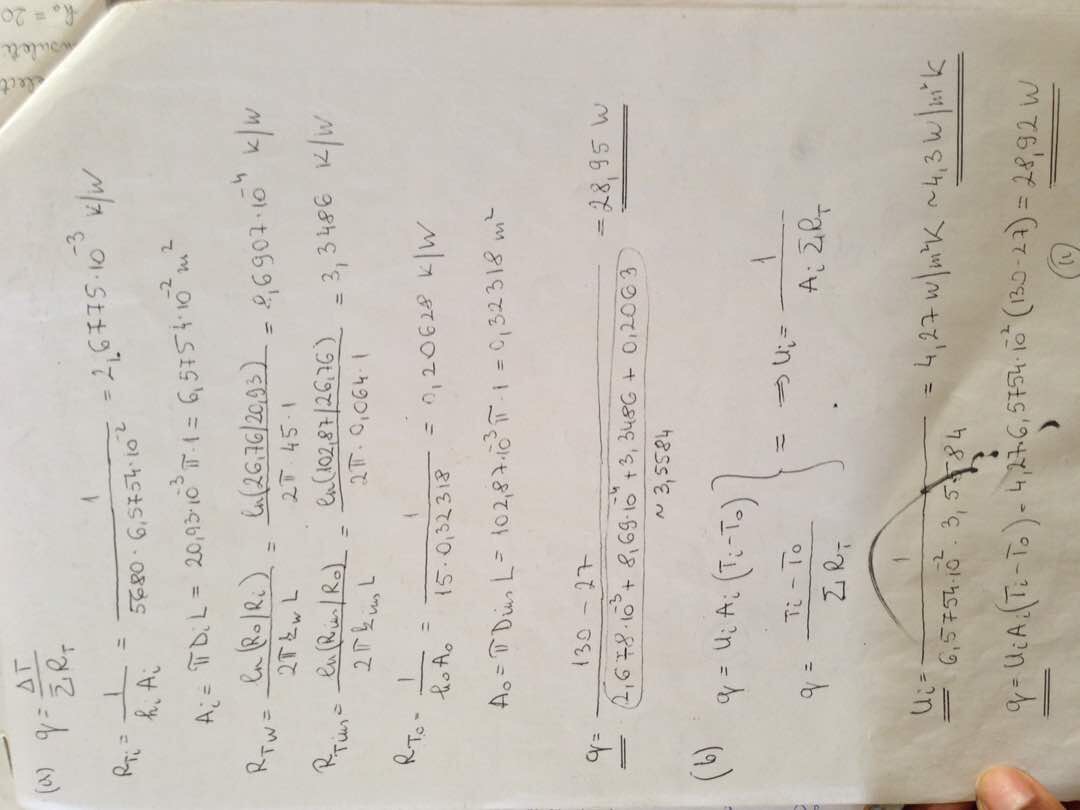 (a) q = ΔT / ΣR_T
R_Ti = 1 / h_i A_i = 1 / 5680 · 6,5754·10⁻² = 2,6775·10⁻³ K/W
A_i = π D_i L = 20,93·10⁻³ π · 1 = 6,5754·10⁻² m²
R_TW = ln(R_o/R_i) / 2π k_w L = ln(26,76/20,93) / 2π · 45 · 1 = 8,6907·10⁻⁴ K/W
R_Tins = ln(R_ins/R_o) / 2π k_ins L = ln(102,87/26,76) / 2π · 0,064 · 1 = 3,3486 K/W
R_To = 1 / h_o A_o = 1 / 15 · 0,32318 = 0,20628 K/W
A_o = π D_ins L = 102,87·10⁻³ π · 1 = 0,32318 m²
q = 130 - 27 / 2,678·10⁻³ + 8,69·10⁻⁴ + 3,3486 + 0,2063 = 28,95 W
~ 3,5584
(b) q = U_i A_i (T_i - T_o)
q = T_i - T_o / ΣR_T } = ⇒ U_i = 1 / A_i ΣR_T
U_i = 1 / 6,5754·10⁻² · 3,5584 = 4,27 W/m²K ~ 4,3 W/m²K
q = U_i A_i (T_i - T_o) = 4,27 6,5754·10⁻² (130 - 27) = 28,92 W
h_o = 20